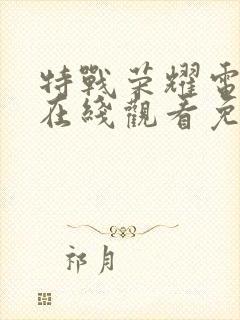 特戰荣耀電
在綫觀看免
祁月